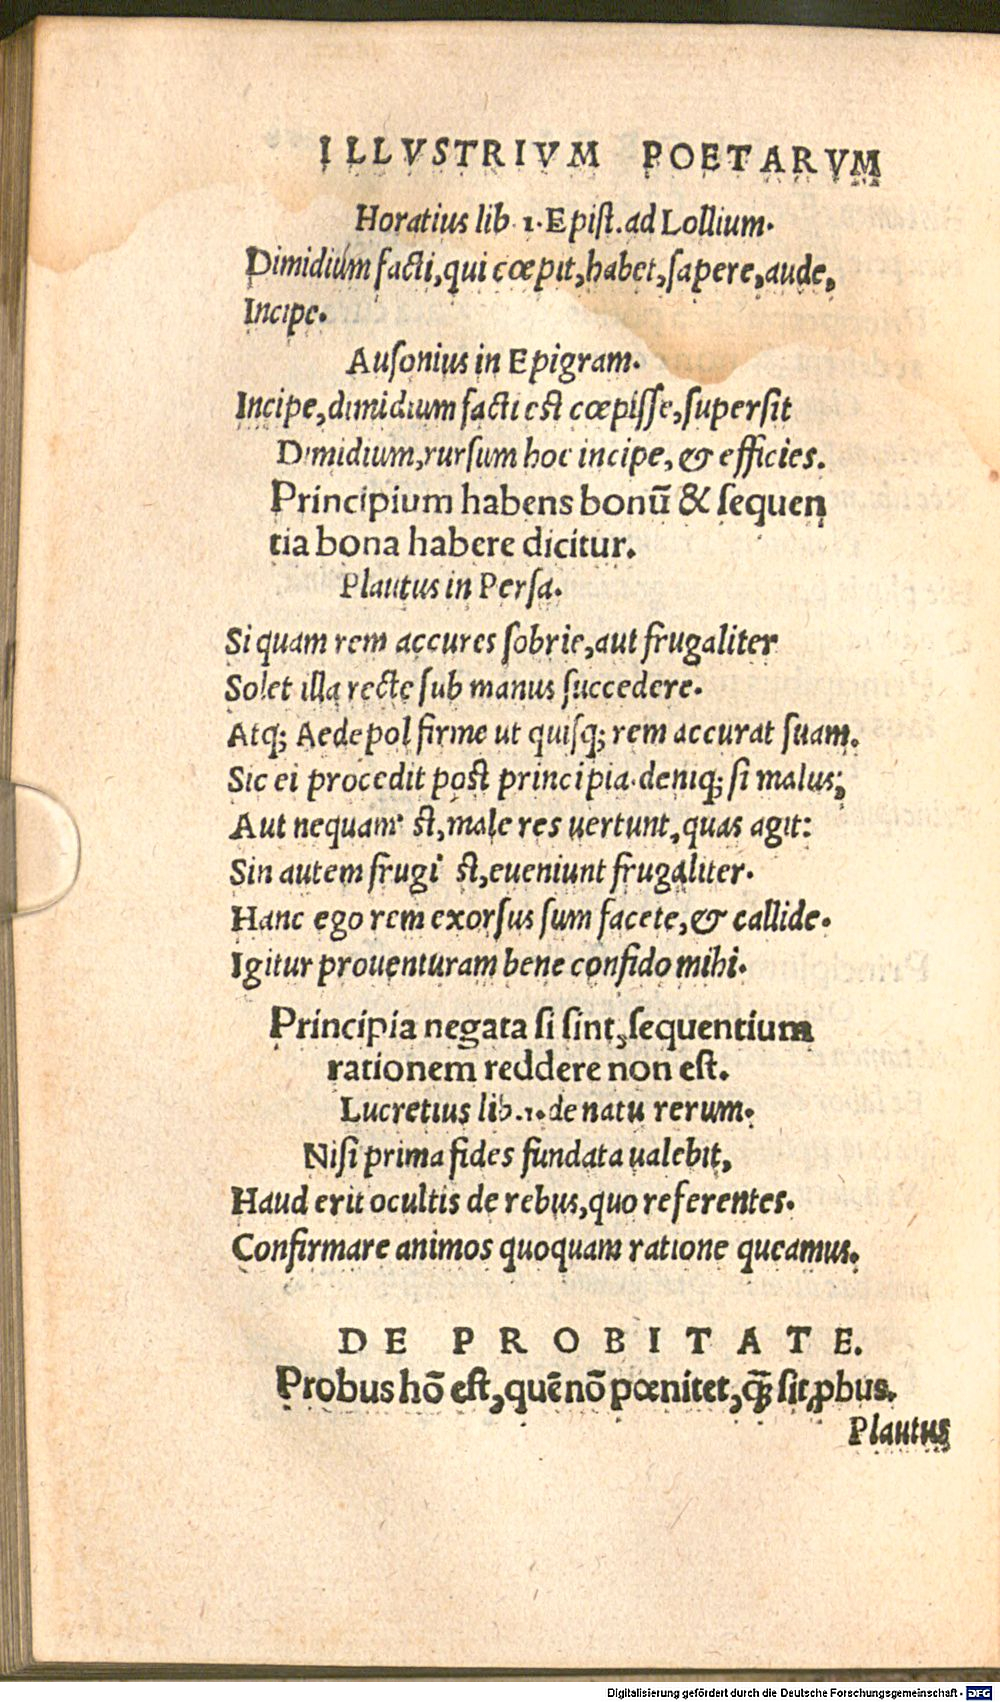 ILLVSTRIVM POETARVM
Horatius lib. 1. Epist. ad Lollium.
Dimidium facti, qui cœpit, habet, sapere, aude,
Incipe.
Ausonius in Epigram.
Incipe, dimidium facti est cœpisse, supersit
Dimidium, rursum hoc incipe, & efficies.
Principium habens bonū & sequen
tia bona habere dicitur.
Plautus in Persa.
Si quam rem accures sobrie, aut frugaliter
Solet illa recte sub manus succedere.
Atq; Aedepol firme ut quisq; rem accurat suam.
Sic ei procedit post principia. deniq; si malus;
Aut nequam' st, male res uertunt, quas agit:
Sin autem frugi' st, eueniunt frugaliter.
Hanc ego rem exorsus sum facete, & callide.
Igitur prouenturam bene confido mihi.
Principia negata si sint, sequentium
rationem reddere non est.
Lucretius lib. 1. de natu rerum.
Nisi prima fides fundata ualebit,
Haud erit ocultis de rebus, quo referentes.
Confirmare animos quoquam ratione queamus.
DE PROBITATE.
Probus hō est, quē nō pœnitet, q̄ sit, ꝓbus.
Plautus
Digitalisierung gefördert durch die Deutsche Forschungsgemeinschaft - DFG